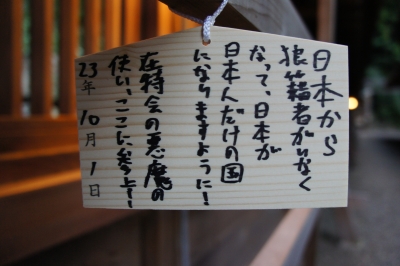 日本から
狼籍者がいなく
なって、日本が
日本人だけの国
になりますように!
在特会の悪魔の
使い、ここに参上!
23年10月1日